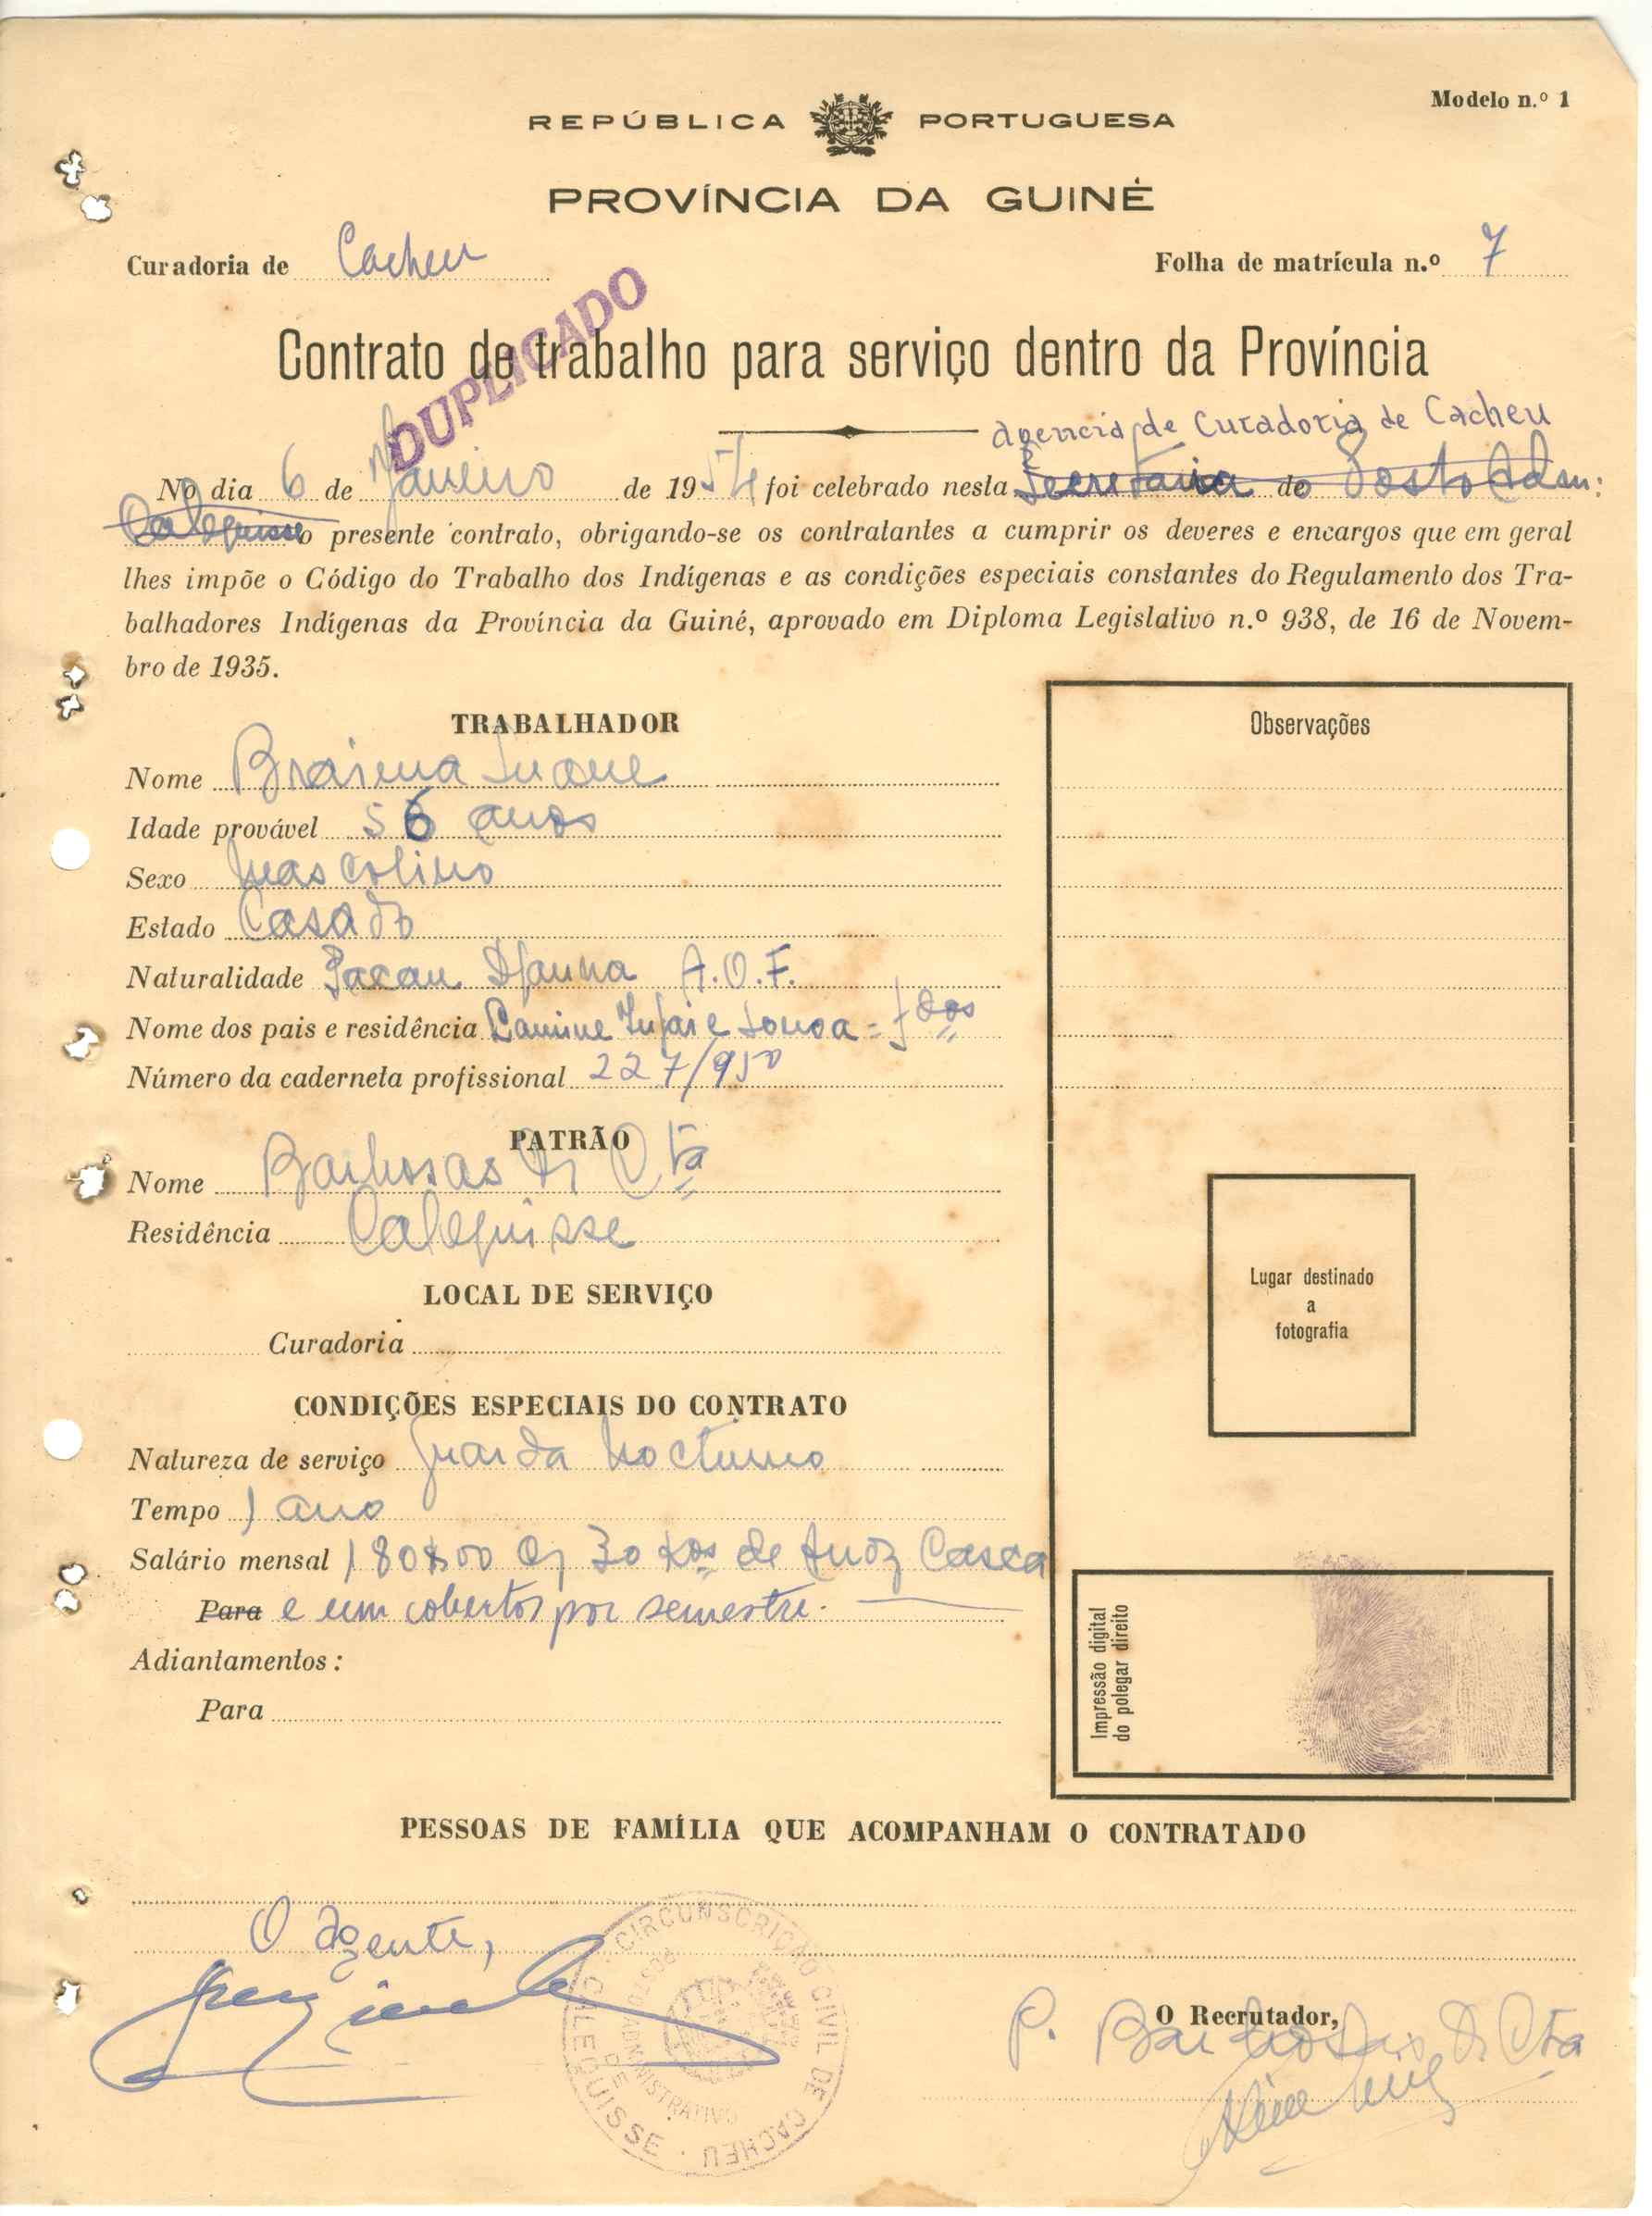 Modelo n.º 1
REPÚBLICA PORTUGUESA
PROVÍNCIA DA GUINÉ
Curadoria de Cacheu
Folha de matrícula n.º 7
DUPLICADO
Contrato de trabalho para serviço dentro da Província
agencia de Curadoria de Cacheu
No dia 6 de Janeiro de 1954 foi celebrado nesta Secretaria do Posto Adm:
Calequisse o presente contrato, obrigando-se os contratantes a cumprir os deveres e encargos que em geral
lhes impõe o Código do Trabalho dos Indígenas e as condições especiais constantes do Regulamento dos Tra-
balhadores Indígenas da Província da Guiné, aprovado em Diploma Legislativo n.º 938, de 16 de Novem-
bro de 1935.
TRABALHADOR
Nome Braima
Idade provável 56 anos
Sexo Mascolino
Estado Casado
Naturalidade Pacau Djanna A.O.F.
Nome dos pais e residência
Número da caderneta profissional 227/950
PATRÃO
Nome Barbosas & Cta
Residência Calequisse
LOCAL DE SERVIÇO
Curadoria
CONDIÇÕES ESPECIAIS DO CONTRATO
Natureza de serviço Guarda Nocturno
Tempo 1 ano
Salário mensal 180$00 30 Kos de Casca
Para e um cobertor por semestre.
Adiantamentos:
Para
Observações
Lugar destinado
a
fotografia
Impressão digital
do polegar direito
PESSOAS DE FAMÍLIA QUE ACOMPANHAM O CONTRATADO
O agente,
CIRCUNSCRIÇÃO CIVIL DE CACHEU
POSTO ADMINISTRATIVO DE
CALEQUISSE
O Recrutador,
P. Barbosas & Cta